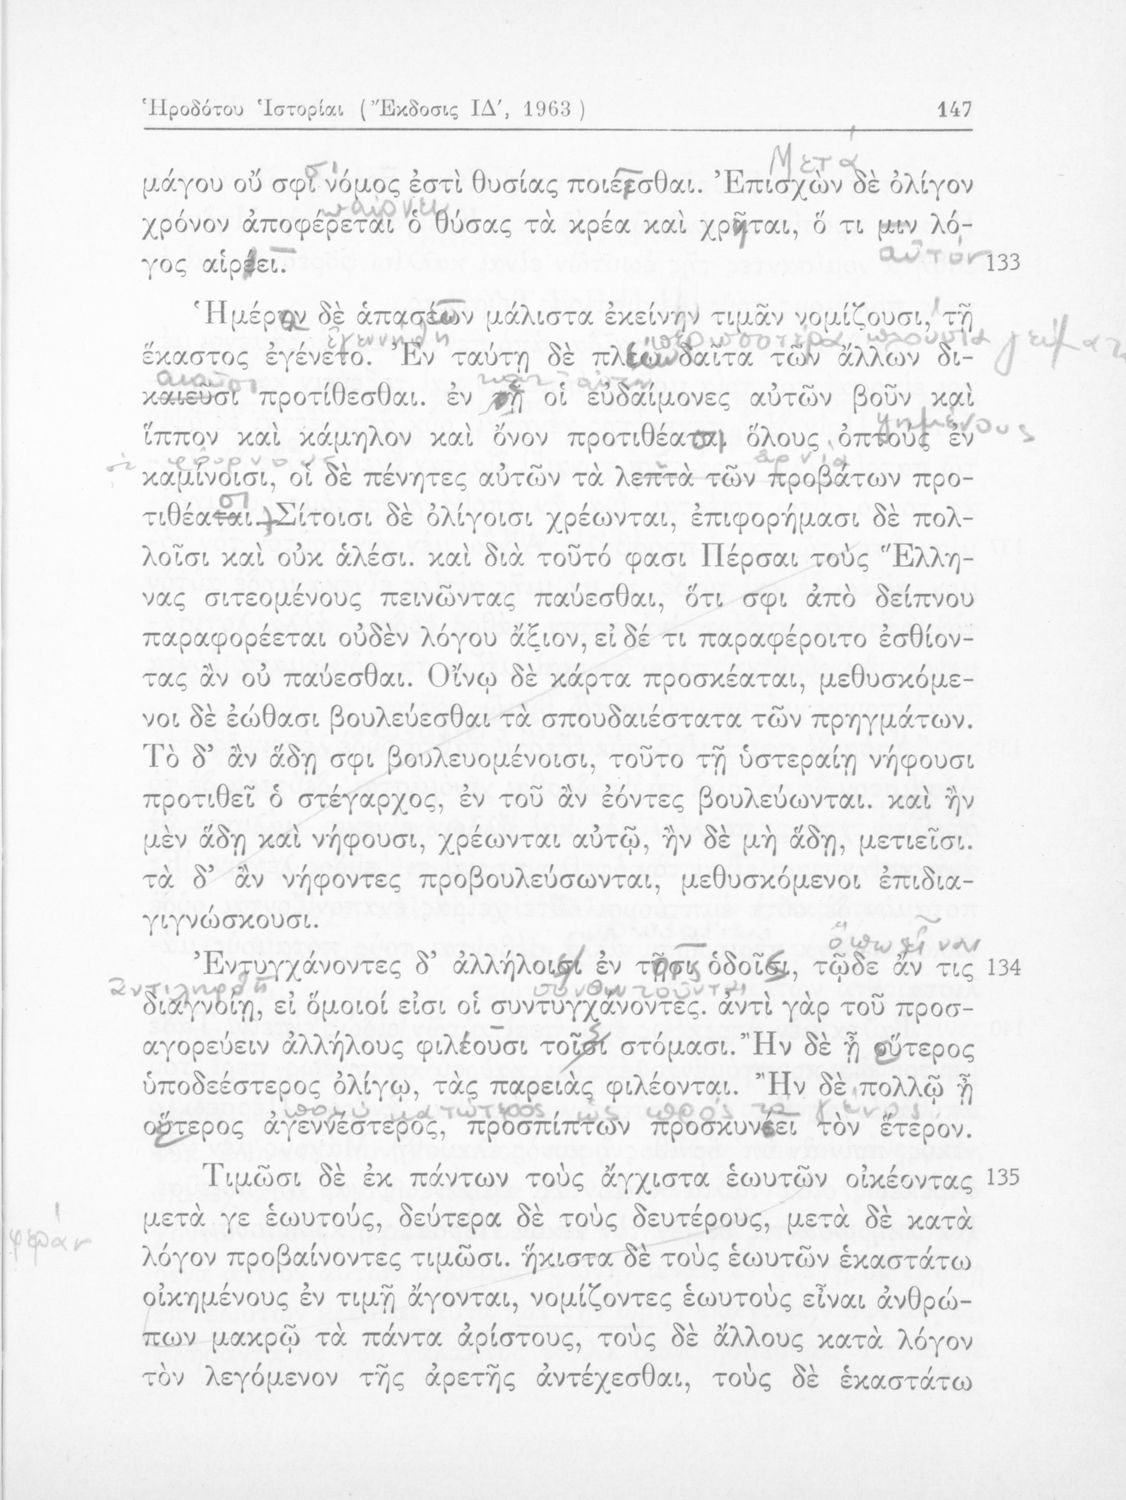 Ἡροδότου Ἱστορίαι (Ἔκδοσις ΙΔ', 1963) 147
Μετά
μάγου οὔ σφι νόμος ἐστὶ θυσίας ποιέεσθαι. Ἐπισχὼν δὲ ὀλίγον
παίρνει
χρόνον ἀποφέρεται ὁ θύσας τὰ κρέα καὶ χρῆται, ὅ τι μιν λό-
αὐτόν
γος αἱρέει. 133
Ἡμέρην δὲ ἁπασέων μάλιστα ἐκείνην τιμᾶν νομίζουσι, τῇ
ἐγεννήθη
ἕκαστος ἐγένετο. Ἐν ταύτῃ δὲ πλέω δαῖτα τῶν ἄλλων δι-
καιεῦσι προτίθεσθαι. ἐν τῇ οἱ εὐδαίμονες αὐτῶν βοῦν καὶ
ψημένους
ἵππον καὶ κάμηλον καὶ ὄνον προτιθέαται ὅλους ὀπτοὺς ἐν
σὲ φούρνους ἀρνία
καμίνοισι, οἱ δὲ πένητες αὐτῶν τὰ λεπτὰ τῶν προβάτων προ-
τιθέαται. Σίτοισι δὲ ὀλίγοισι χρέωνται, ἐπιφορήμασι δὲ πολ-
λοῖσι καὶ οὐκ ἁλέσι. καὶ διὰ τοῦτό φασι Πέρσαι τοὺς Ἕλλη-
νας σιτεομένους πεινῶντας παύεσθαι, ὅτι σφι ἀπὸ δείπνου
παραφορέεται οὐδὲν λόγου ἄξιον, εἰ δέ τι παραφέροιτο ἐσθίον-
τας ἂν οὐ παύεσθαι. Οἴνῳ δὲ κάρτα προσκέαται, μεθυσκόμε-
νοι δὲ ἐώθασι βουλεύεσθαι τὰ σπουδαιέστατα τῶν πρηγμάτων.
Τὸ δ' ἂν ἅδῃ σφι βουλευομένοισι, τοῦτο τῇ ὑστεραίῃ νήφουσι
προτιθεῖ ὁ στέγαρχος, ἐν τοῦ ἂν ἐόντες βουλεύωνται. καὶ ἢν
μὲν ἅδῃ καὶ νήφουσι, χρέωνται αὐτῷ, ἢν δὲ μὴ ἅδῃ, μετιεῖσι.
τὰ δ' ἂν νήφοντες προβουλεύσωνται, μεθυσκόμενοι ἐπιδια-
γιγνώσκουσι.
Ἐντυγχάνοντες δ' ἀλλήλοισι ἐν τῇσι ὁδοῖσι, τῷδε ἄν τις 134
ἀντιληφθῇ συναντοῦνται
διαγνοίη, εἰ ὅμοιοί εἰσι οἱ συντυγχάνοντες. ἀντὶ γὰρ τοῦ προσ-
αγορεύειν ἀλλήλους φιλέουσι τοῖσι στόμασι. Ἢν δὲ ᾖ οὕτερος
ὑποδεέστερος ὀλίγῳ, τὰς παρειὰς φιλέονται. Ἢν δὲ πολλῷ ᾖ
πολύ κατώτερος ὡς πρὸς τὸ γένος
οὕτερος ἀγεννέστερος, προσπίπτων προσκυνέει τὸν ἕτερον.
Τιμῶσι δὲ ἐκ πάντων τοὺς ἄγχιστα ἑωυτῶν οἰκέοντας 135
μετά γε ἑωυτούς, δεύτερα δὲ τοὺς δευτέρους, μετὰ δὲ κατὰ
λόγον προβαίνοντες τιμῶσι. ἥκιστα δὲ τοὺς ἑωυτῶν ἑκαστάτω
οἰκημένους ἐν τιμῇ ἄγονται, νομίζοντες ἑωυτοὺς εἶναι ἀνθρώ-
πων μακρῷ τὰ πάντα ἀρίστους, τοὺς δὲ ἄλλους κατὰ λόγον
τὸν λεγόμενον τῆς ἀρετῆς ἀντέχεσθαι, τοὺς δὲ ἑκαστάτω